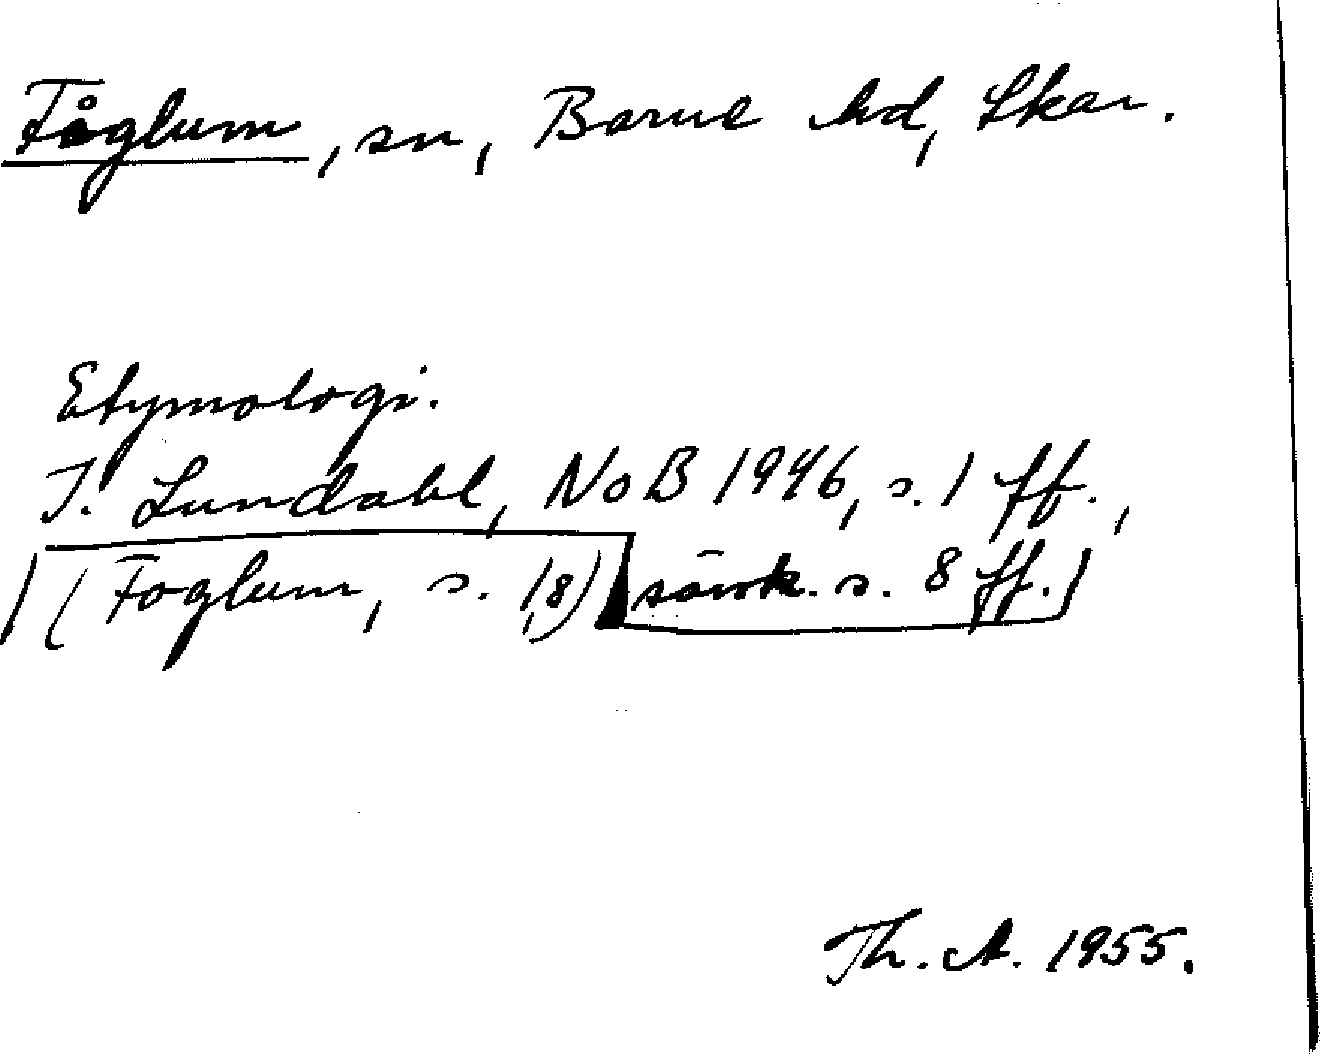 Fåglum, sn, Barne hd, Skar.
Etymologi.
I. Lundahl, NoB 1946, s. 1 ff.,
(Foglum, s. 1,8) särsk. s. 8 ff.
Th. A. 1955.